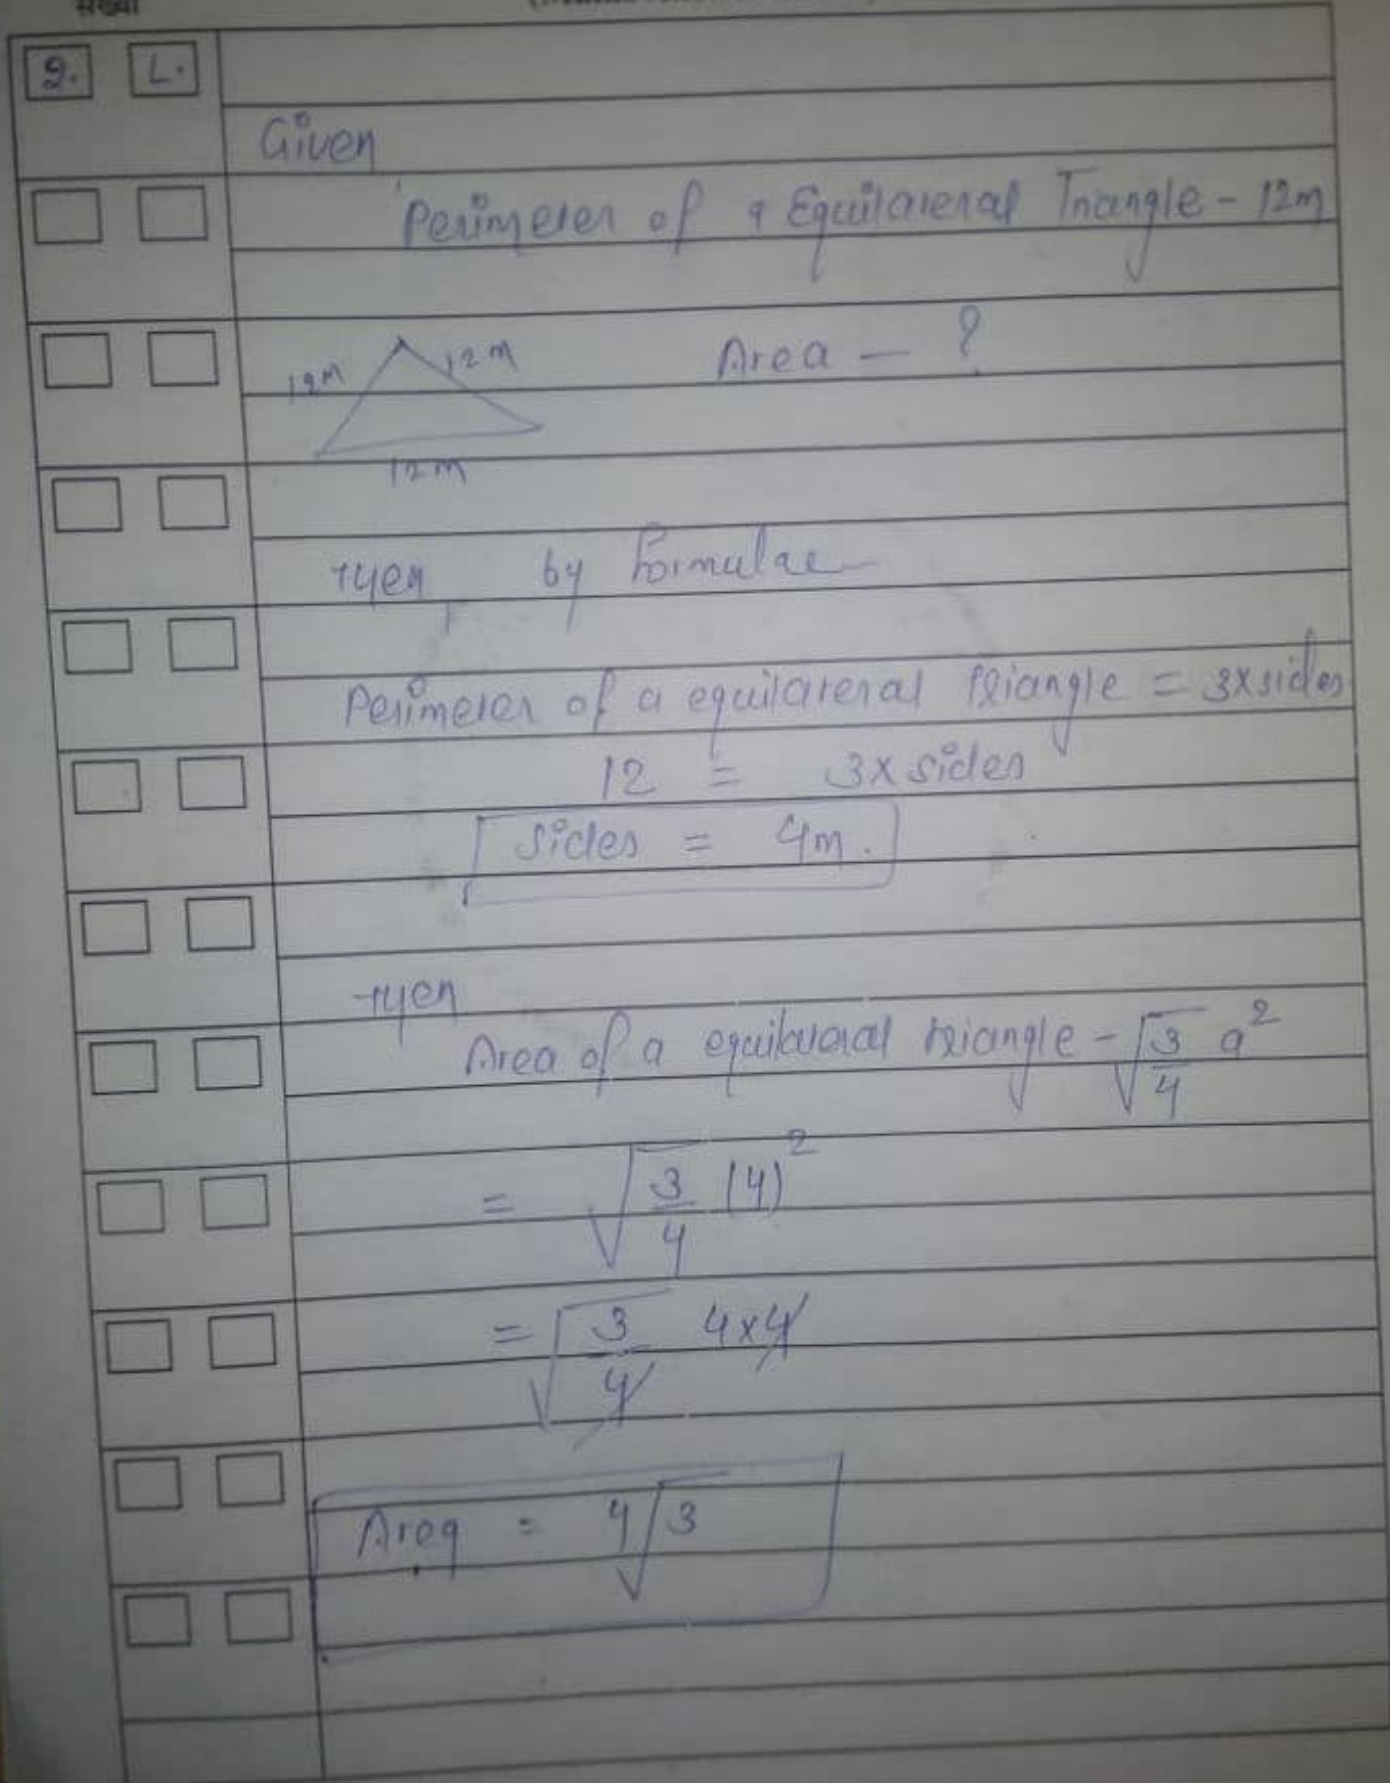 संख्या
2. L.
Given
Perimeter of a Equilateral Triangle - 12m
12m 12m Area — ?
12m
then by Formulae
Perimeter of a equilateral triangle = 3×sides
12 = 3×sides
sides = 4m.
then
Area of a equilateral triangle - √3/4 a²
= √3/4 (4)²
= √3/4 4×4
Area = 4√3